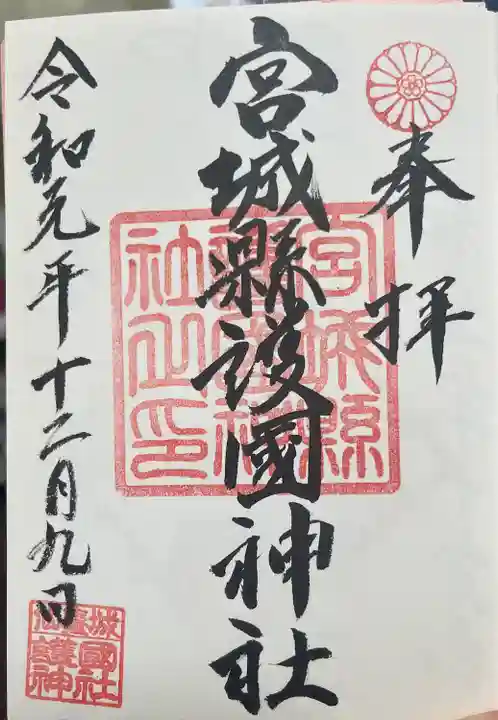 奉拝
宮城縣護國神社
令和元年十二月九日
宮城縣護國神社之印
仙臺城護國神社